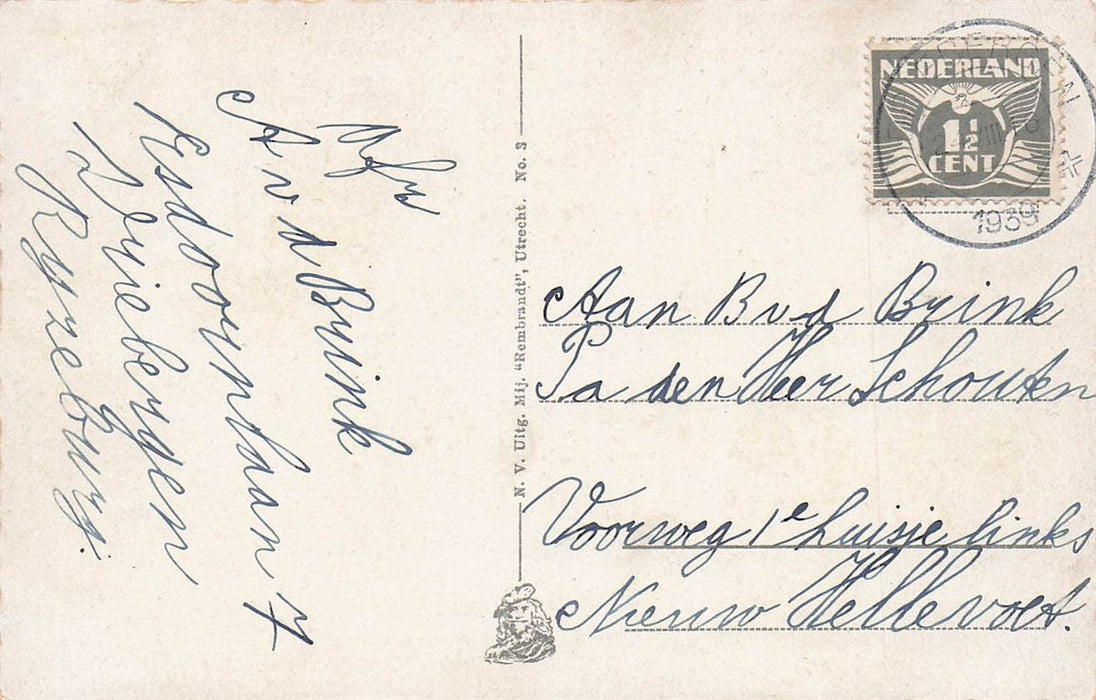 Afz
A v d Brink
Esdoornlaan 7
Driebergen
Ryzeburg.
N. V. Uitg. Mij. "Rembrandt", Utrecht. No. S
NEDERLAND
1½
CENT
1939
Aan B v d Brink
Pa den Heer Schouten
Voorweg 1e huisje links
Nieuw Hellevoet.